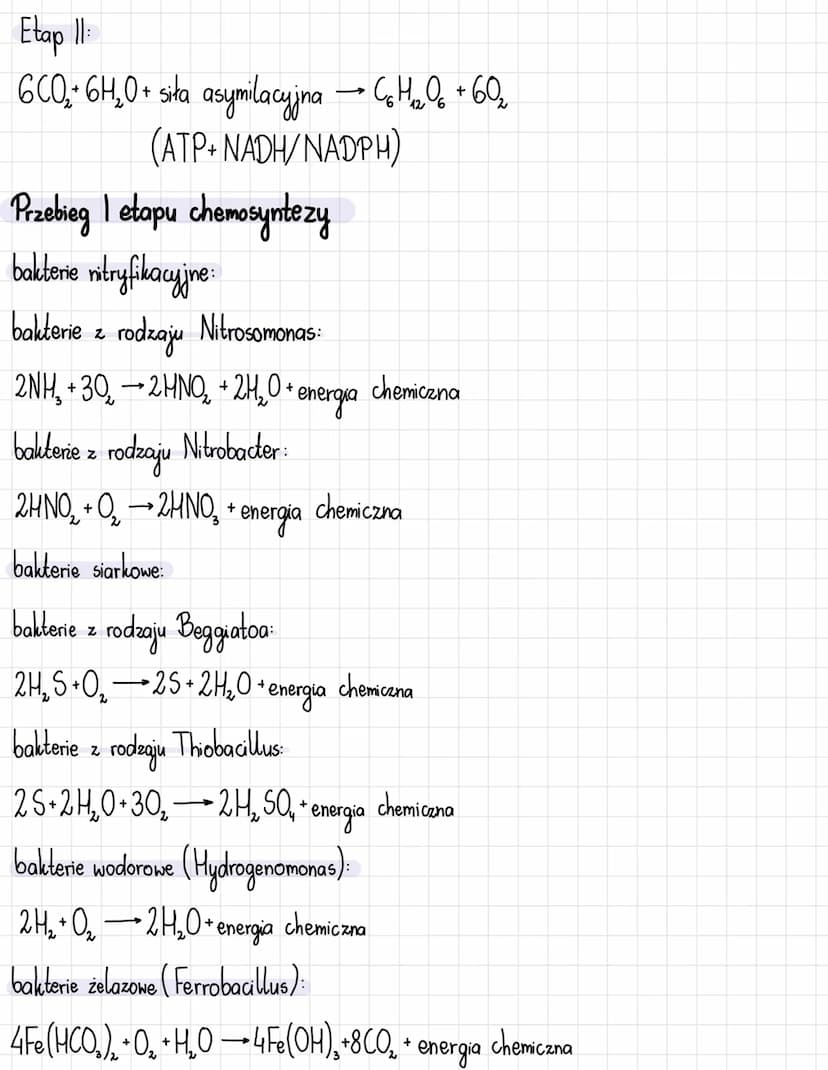 Etap II:
6CO₂+6H₂O+ siła asymilacyjna → C₆H₁₂O₆ + 6O₂
(ATP+NADH/NADPH)
Przebieg I etapu chemosyntezy
bakterie nitryfikacyjne:
bakterie z rodzaju Nitrosomonas:
2NH₃+3O₂→2HNO₂+2H₂O+energia chemiczna
bakterie z rodzaju Nitrobacter:
2HNO₂+O₂→2HNO₃+energia chemiczna
bakterie siarkowe:
bakterie z rodzaju Beggiatoa:
2H₂S+O₂→2S+2H₂O+energia chemiczna
bakterie z rodzaju Thiobacillus:
2S+2H₂O+3O₂→2H₂SO₄+energia chemiczna
bakterie wodorowe (Hydrogenomonas):
2H₂+O₂→2H₂O+energia chemiczna
bakterie żelazowe (Ferrobacillus):
4Fe(HCO₃)₂+O₂+H₂O→4Fe(OH)₃+8CO₂+energia chemiczna